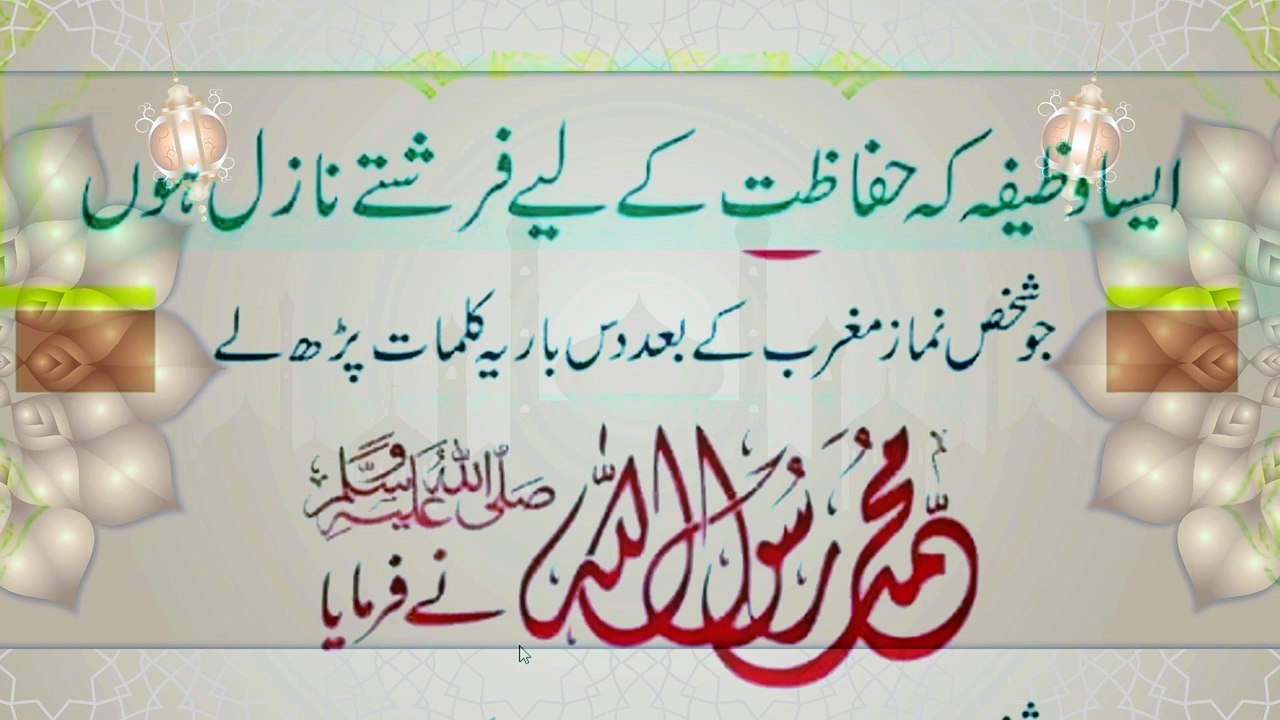 ایسا وظیفہ کہ حفاظت کے لیے فرشتے نازل ہوں
جو شخص نماز مغرب کے بعد دس بار یہ کلمات پڑھ لے
محمد رسول اللہ صلى الله عليه وسلم
نے فرمایا